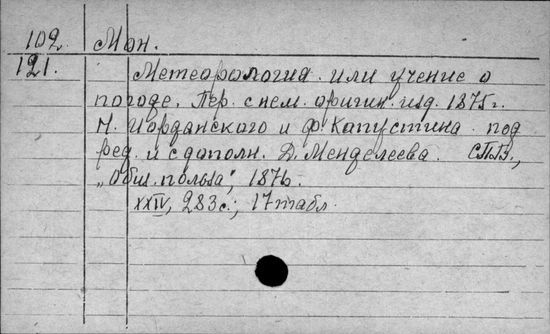 102. Мон.
121.
Метеорология или учение о
погоде. Пер. с нем. оригин. изд. 1875 г.
Н. Иорданского и Ф. Капустина под
ред. и с дополн. Д. Менделеева. СПБ.,
„Общ. польза", 1876.
XXIV, 283 с.; 17 табл.